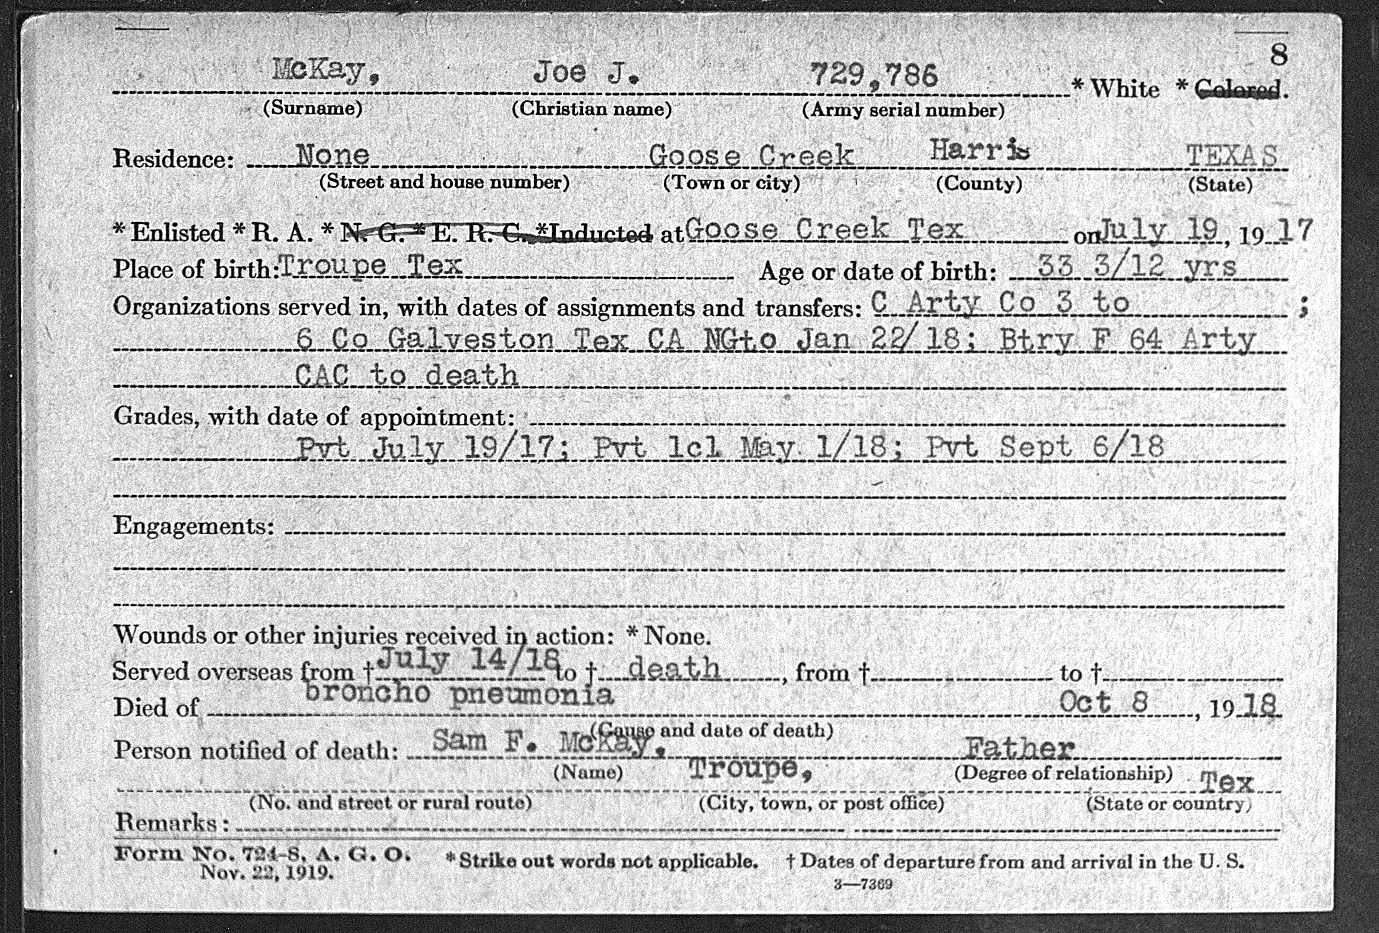 8
McKay, Joe J. 729,786 * White * Colored.
(Surname) (Christian name) (Army serial number)
Residence: None Goose Creek Harris TEXAS
(Street and house number) (Town or city) (County) (State)
* Enlisted * R. A. * N. G. * E. R. C. *Inducted at Goose Creek Tex on July 19, 19 17
Place of birth: Troupe Tex Age or date of birth: 33 3/12 yrs
Organizations served in, with dates of assignments and transfers: C Arty Co 3 to ;
6 Co Galveston Tex CA NGto Jan 22/18; Btry F 64 Arty
CAC to death
Grades, with date of appointment:
Pvt July 19/17; Pvt 1cl May 1/18; Pvt Sept 6/18
Engagements:
Wounds or other injuries received in action: * None.
Served overseas from † July 14/18 to † death, from † to †
Died of broncho pneumonia Oct 8, 19 18
(Cause and date of death)
Person notified of death: Sam F. McKay, Father
(Name) (Degree of relationship)
Troupe, Tex
(No. and street or rural route) (City, town, or post office) (State or country)
Remarks:
Form No. 724-8, A. G. O. * Strike out words not applicable. † Dates of departure from and arrival in the U. S.
Nov. 22, 1919. 3—7369